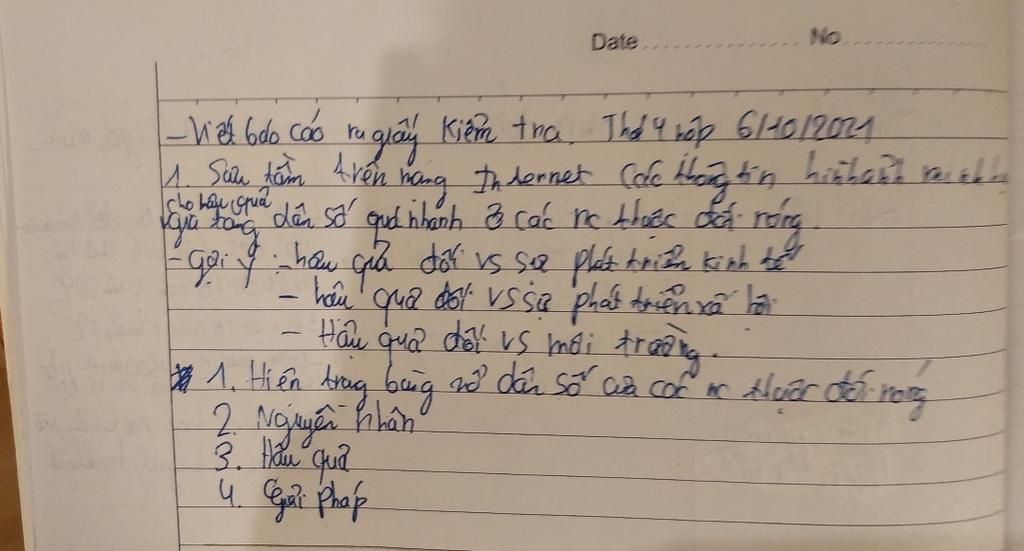 Date No
- Viết báo cáo ra giấy kiểm tra. Thứ 4 nộp 6/10/2021
1. Sưu tầm trên mạng Internet các thông tin hình ảnh minh
cho hậu quả
gia tăng dân số quá nhanh ở các nc thuộc đới nóng.
- Gợi ý : - hậu quả đối vs sự phát triển kinh tế
- hậu quả đối vs sự phát triển xã hội
- Hậu quả đối vs môi trường.
1. Hiện trạng bùng nổ dân số của các nc thuộc đới nóng
2. Nguyên nhân
3. Hậu quả
4. Giải pháp